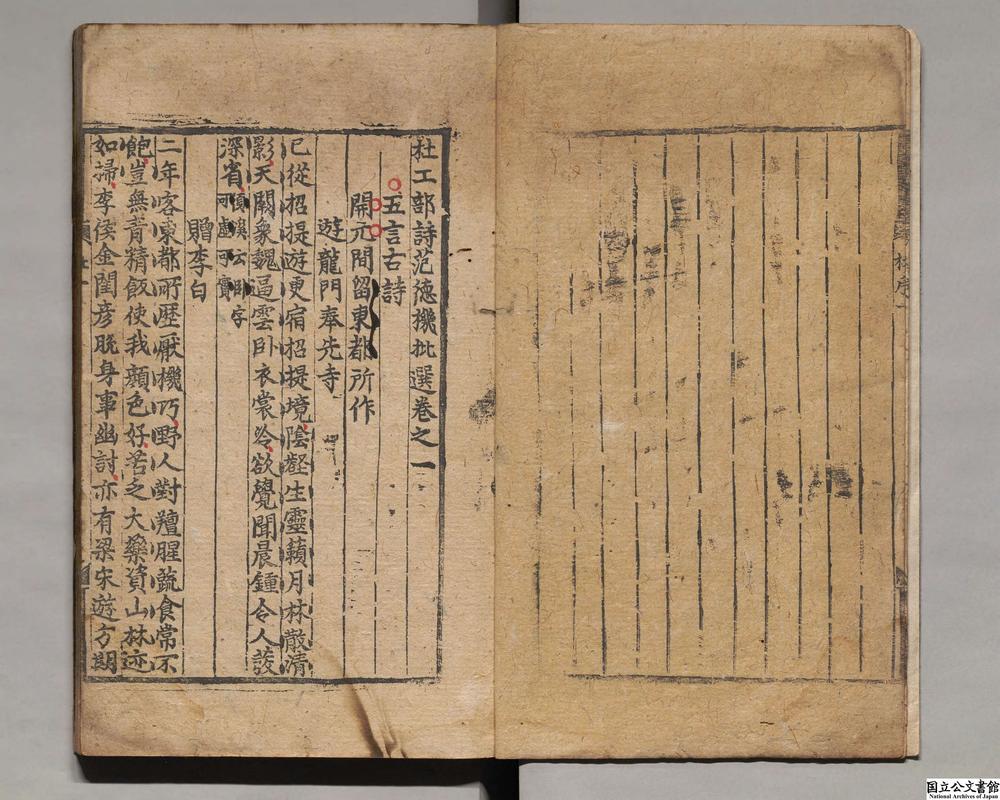 林序
杜工部詩范德機批選卷之一
五言古詩
開元間留東都所作
遊龍門奉先寺
已從招提遊更宿招提境陰壑生靈籟月林散清
影天闕象魏逼雲臥衣裳冷欲覺聞晨鍾令人發
深省須溪云臥字
可虛可實
贈李白
二年客東都所歷厭機巧野人對羶腥蔬食常不
飽豈無青精飯使我顏色好苦乏大藥資山林迹
如掃李侯金閨彥脫身事幽討亦有梁宋遊方期
国立公文書館
National Archives of Japan